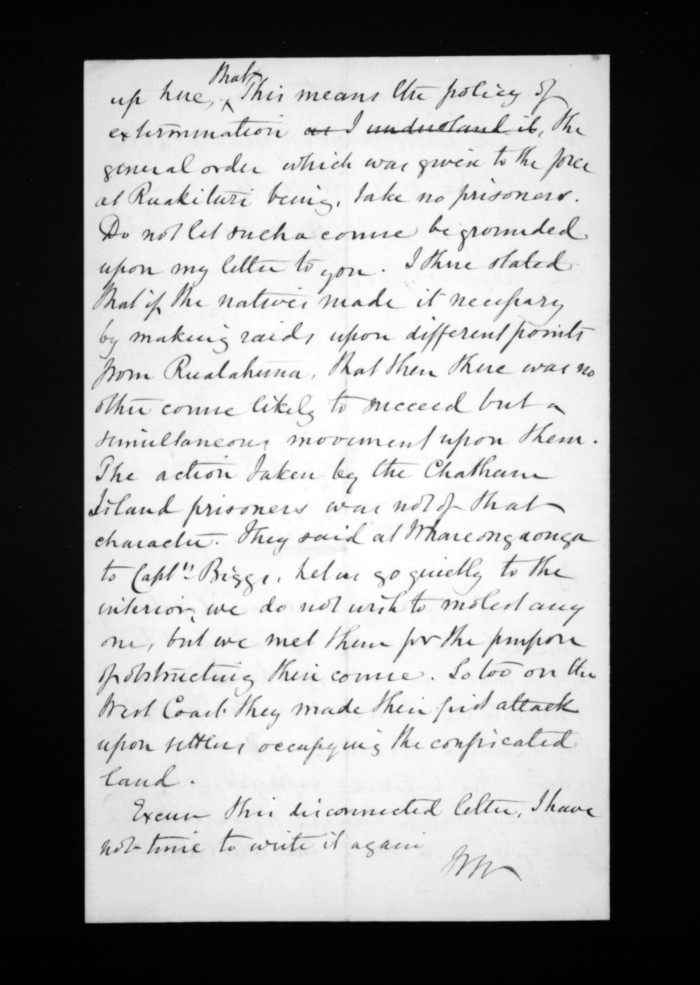 up here, that This means the policy of
extermination as I understand it, the
general order which was given to the force
at Ruakituri being, take no prisoners.
Do not let such a course be grounded
upon my letter to you. I there stated
that if the natives made it necessary
by making raids upon different points
from Ruatahuna, that then there was no
other course likely to succeed but a
simultaneous movement upon them.
The action taken by the Chatham
Island prisoners was not of that
character. They said at Whareongaonga
to Captn. Biggs, let us go quietly to the
interior, we do not wish to molest any
one, but we met them for the purpose
of obstructing their course. So too on the
West Coast they made their first attack
upon settlers occupying the confiscated
land.
Excuse this disconnected letter, I have
not time to write it again
WW